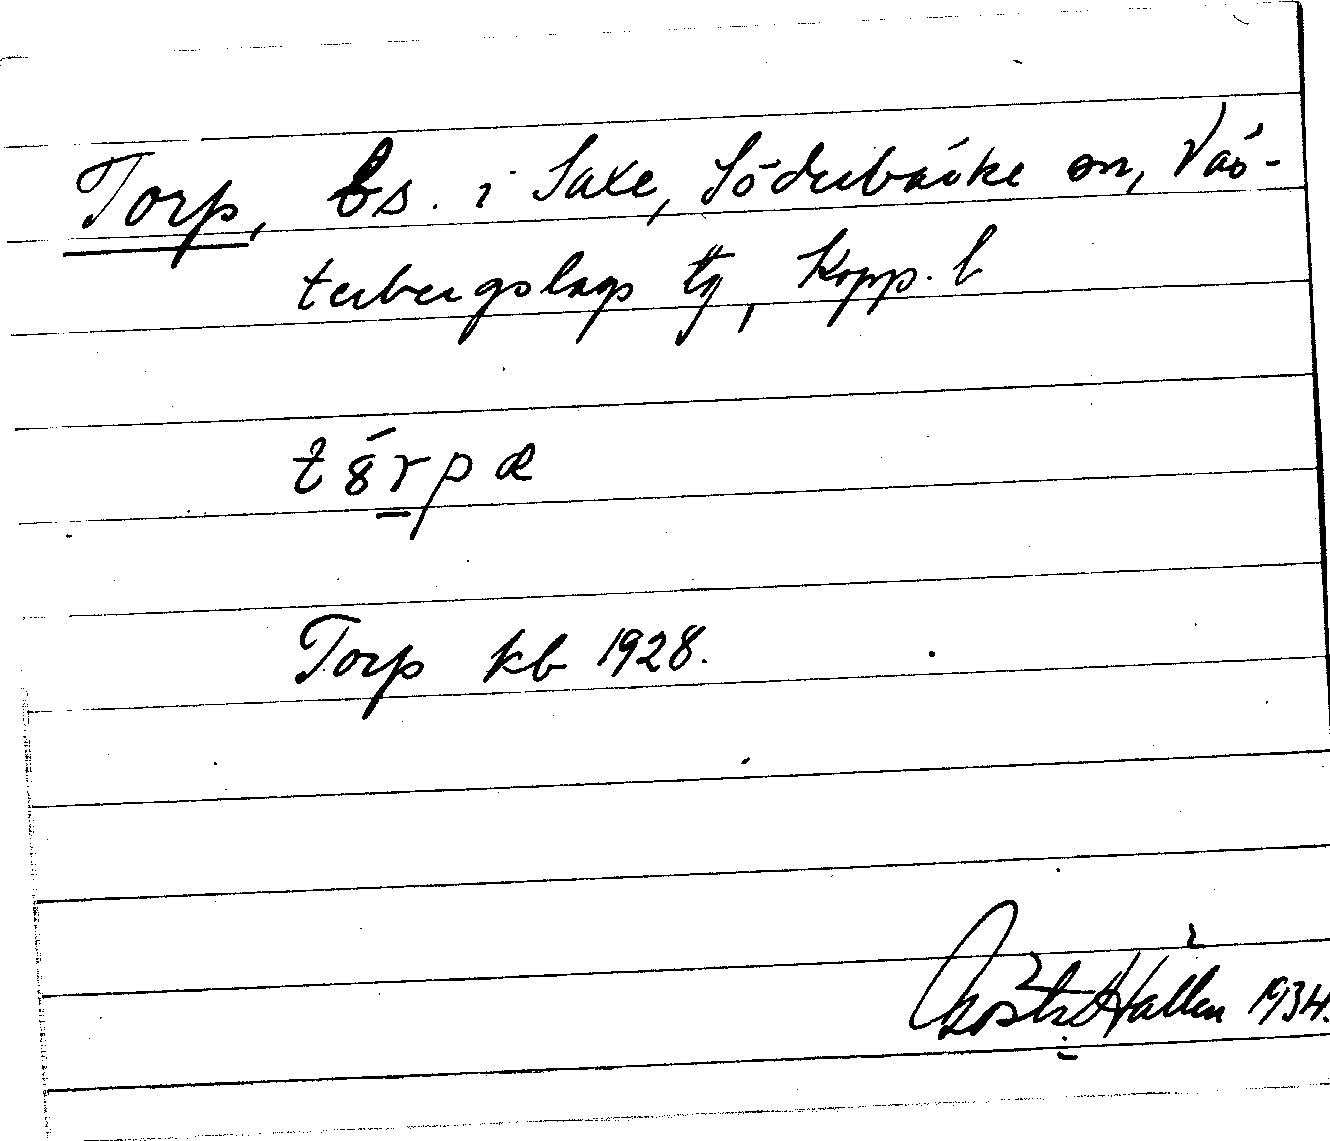 Torp, bs. i Saxe, Söderbärke sn, Väs-
terbergslags tg, Kopp. l
tȣ́rpæ
Torp kb 1928.
Gösta Hallén 1934.